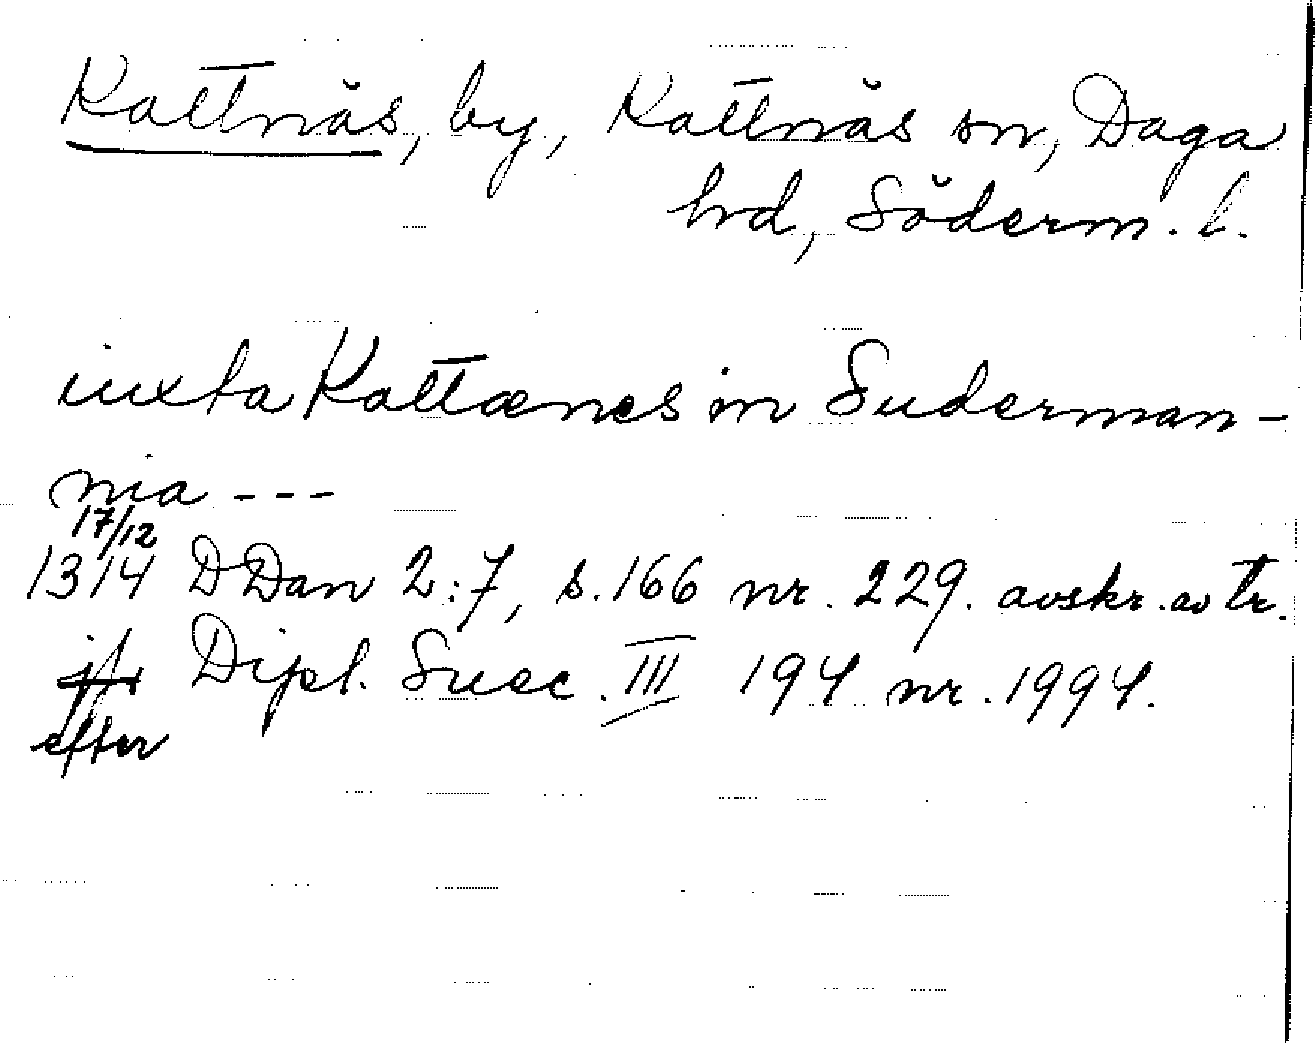 Kattnäs, by, Kattnäs sn, Daga
hd, Söderm. l.
iuxta Kattænes in Suderman-
nia ---
17/12
1314 DDan 2:7, s. 166 nr. 229. avskr. av tr.
jfr Dipl. Suec. III 194 nr. 1994.
efter